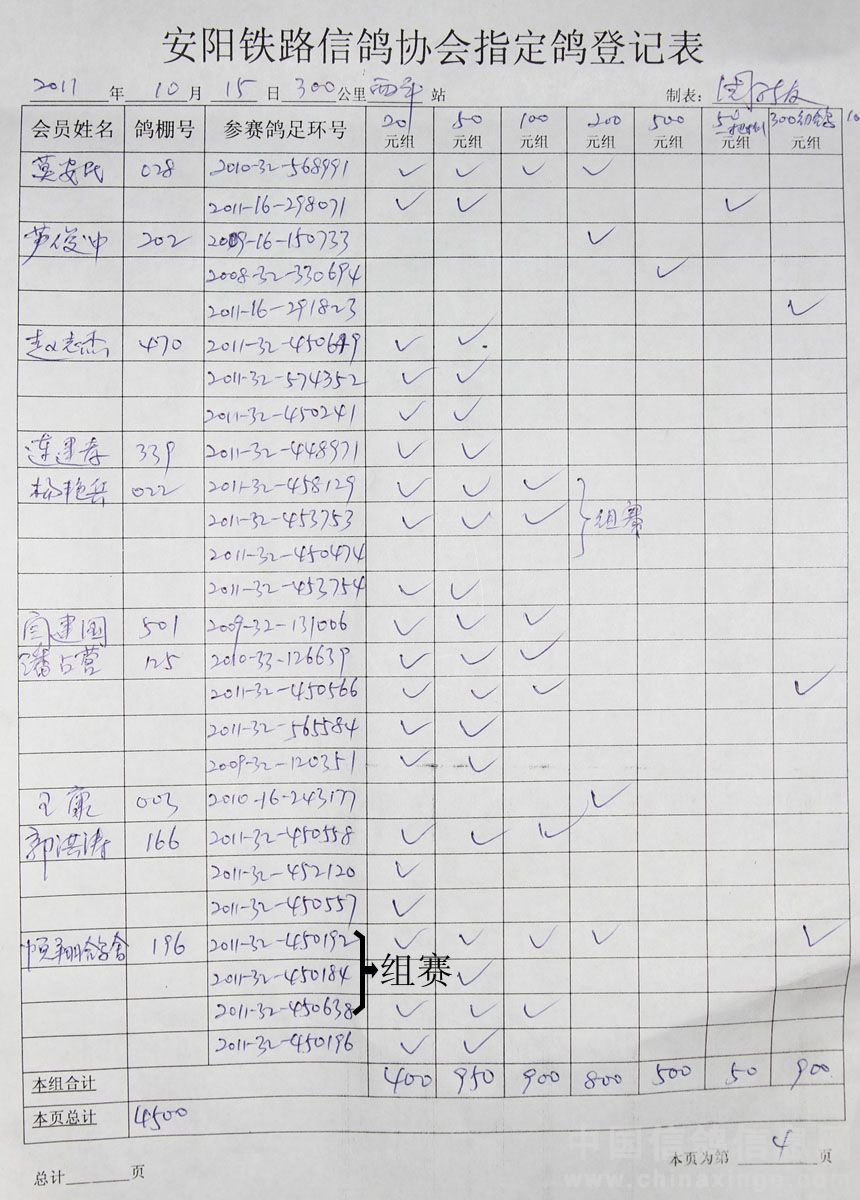 安阳铁路信鸽协会指定鸽登记表
2011 年 10 月 15 日 300 公里 西平 站 制表:
会员姓名 鸽棚号 参赛鸽足环号 20元组 50元组 100元组 200元组 500元组 50 元组 300幼鸽元组 10
莫安民 028 2010-32-568991 ✓ ✓ ✓ ✓
2011-16-298071 ✓ ✓ ✓
202 2009-16-150733 ✓
2008-32-330694 ✓
2011-16-291823 ✓
赵志杰 470 2011-32-450649 ✓ ✓
2011-32-574352 ✓ ✓
2011-32-450241 ✓ ✓
连建春 339 2011-32-448971 ✓ ✓
杨艳兵 022 2011-32-458129 ✓ ✓ ✓
2011-32-453753 ✓ ✓ ✓ 组赛
2011-32-450474
2011-32-453754 ✓ ✓
闫建国 501 2009-32-131006 ✓ ✓ ✓
潘占营 125 2010-33-126639 ✓ ✓ ✓
2011-32-450566 ✓ ✓ ✓ ✓
2011-32-565584 ✓ ✓
2009-32-120351 ✓ ✓
王 003 2010-16-243177 ✓
郭洪涛 166 2011-32-450558 ✓ ✓ ✓
2011-32-452120 ✓
2011-32-450557 ✓
恒翔鸽舍 196 2011-32-450192 ✓ ✓ ✓ ✓ ✓
2011-32-450184 组赛 ✓
2011-32-450638 ✓ ✓ ✓
2011-32-450196 ✓ ✓
本组合计 400 950 900 800 500 50 900
本页总计 4500
总计 页 本页为第 4 页
中国信鸽信息网
www.chinaxinge.com